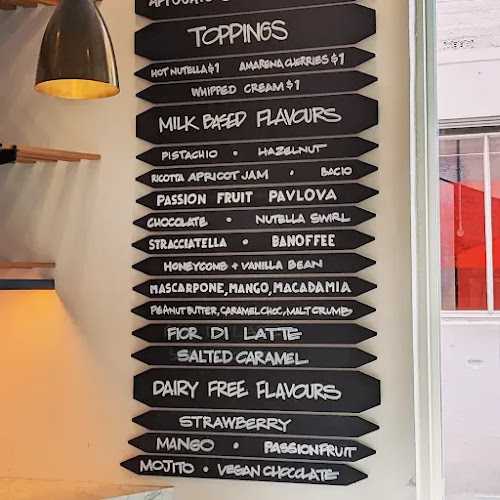 TOPPINGS
HOT NUTELLA $1 AMARENA CHERRIES $1
WHIPPED CREAM $1
MILK BASED FLAVOURS
PISTACHIO • HAZELNUT
RICOTTA APRICOT JAM • BACIO
PASSION FRUIT PAVLOVA
CHOCOLATE • NUTELLA SWIRL
STRACCIATELLA • BANOFFEE
HONEYCOMB + VANILLA BEAN
MASCARPONE, MANGO, MACADAMIA
PEANUT BUTTER, CARAMEL CHOC, MALT CRUMB
FIOR DI LATTE
SALTED CARAMEL
DAIRY FREE FLAVOURS
STRAWBERRY
MANGO • PASSIONFRUIT
MOJITO • VEGAN CHOCOLATE